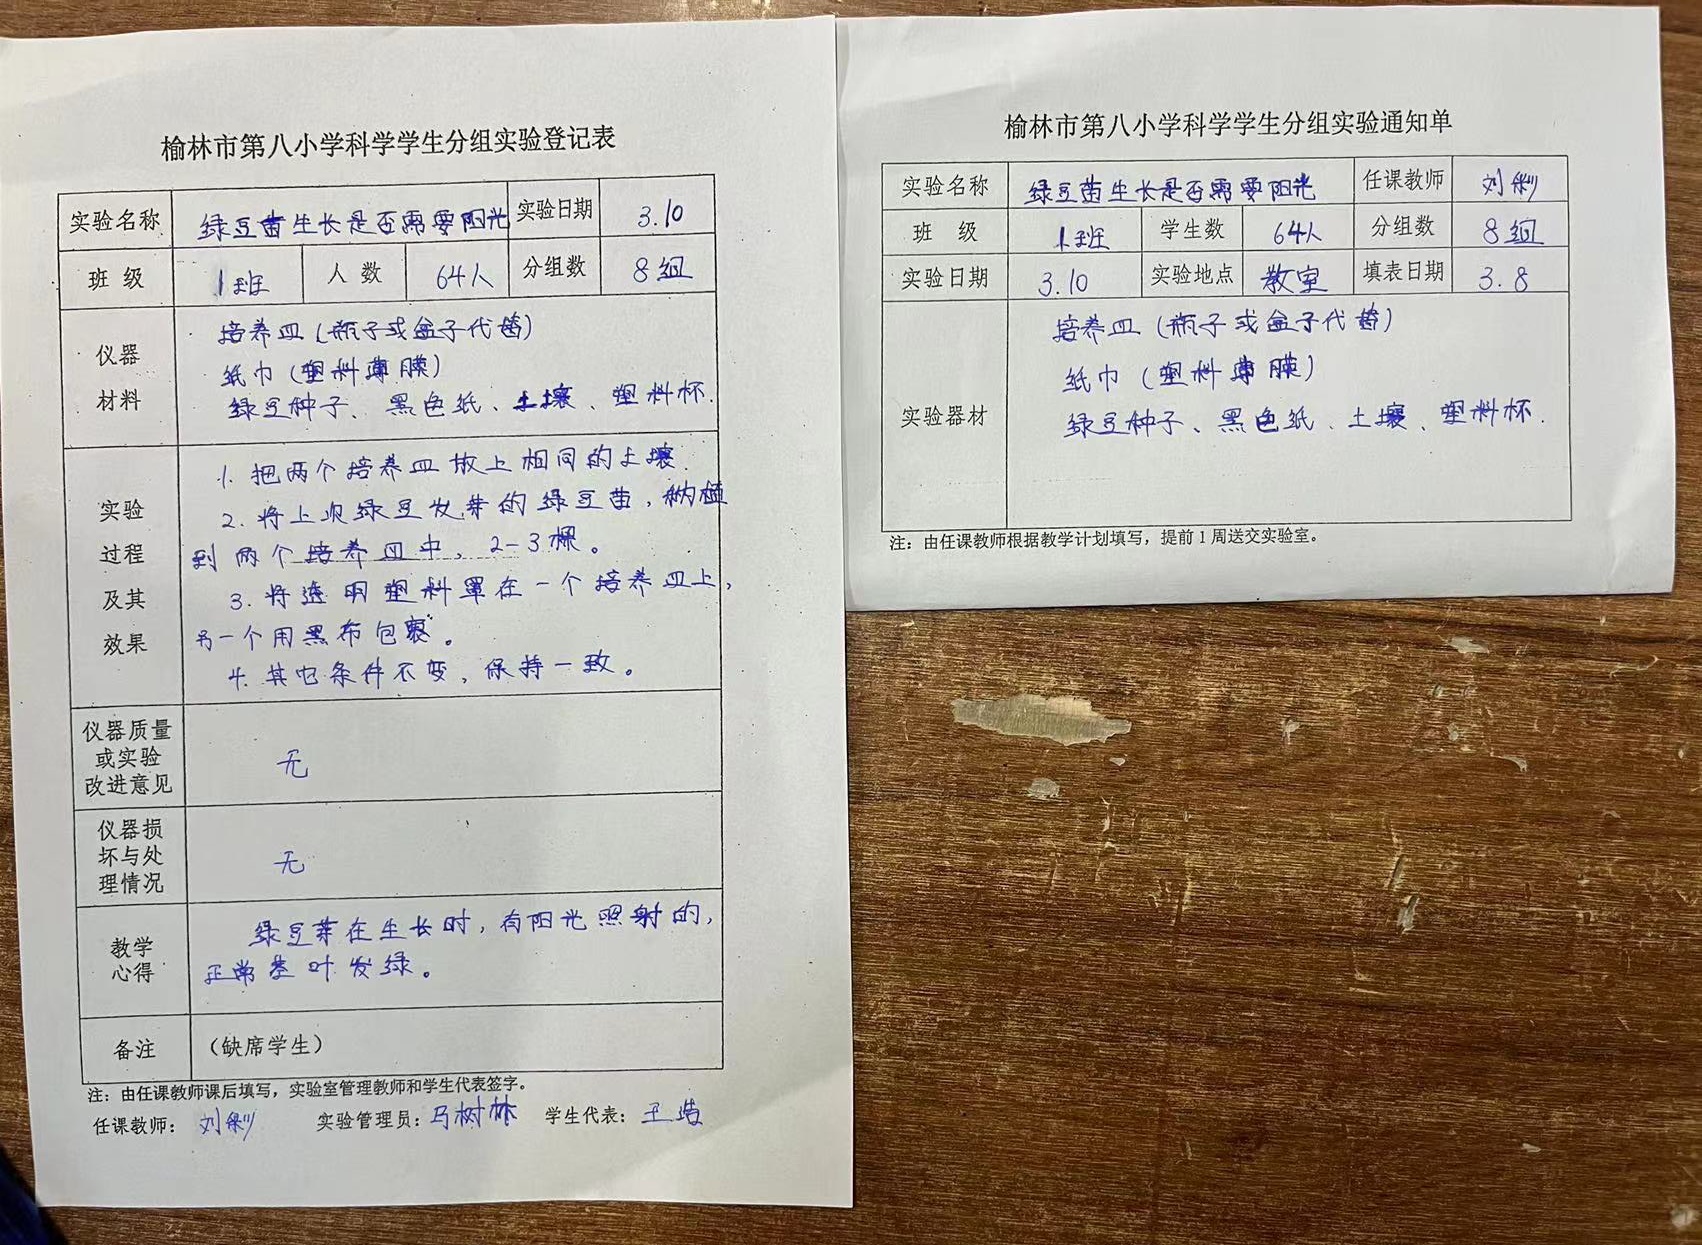 榆林市第八小学科学学生分组实验登记表
实验名称 绿豆苗生长是否需要阳光 实验日期 3.10
班 级 1班 人 数 64人 分组数 8组
仪器
材料
培养皿(瓶子或盒子代替)
纸巾(塑料薄膜)
绿豆种子、黑色纸、土壤、塑料杯.
实验
过程
及其
效果
1. 把两个培养皿放上相同的土壤.
2. 将上次绿豆发芽的绿豆苗,移植
到两个培养皿中,2-3棵。
3. 将透明塑料罩在一个培养皿上,
另一个用黑布包裹。
4. 其它条件不变,保持一致。
仪器质量
或实验
改进意见
无
仪器损
坏与处
理情况
无
教学
心得
绿豆芽在生长时,有阳光照射的,
正常茎叶发绿。
备注 (缺席学生)
注:由任课教师课后填写,实验室管理教师和学生代表签字。
任课教师: 刘 实验管理员: 马树林 学生代表: 王
榆林市第八小学科学学生分组实验通知单
实验名称 绿豆苗生长是否需要阳光 任课教师 刘
班 级 1班 学生数 64人 分组数 8组
实验日期 3.10 实验地点 教室 填表日期 3.8
实验器材
培养皿(瓶子或盒子代替)
纸巾(塑料薄膜)
绿豆种子、黑色纸、土壤、塑料杯.
注:由任课教师根据教学计划填写,提前1周送交实验室。